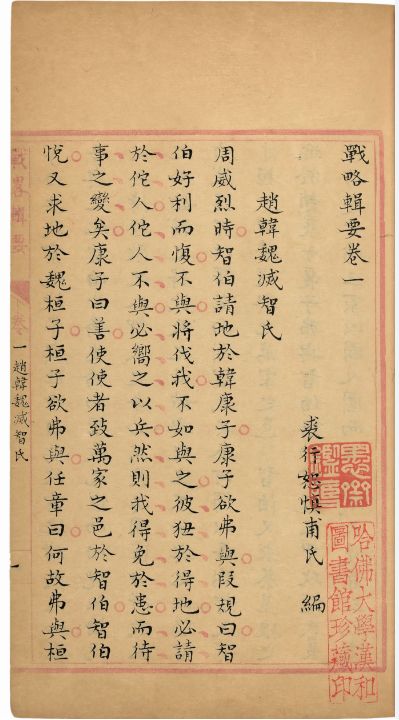 戰略輯要卷一
裘行恕慎甫氏 編
哈佛大學漢和
圖書館珍藏印
趙韓魏滅智氏
周威烈時智伯請地於韓康子康子欲弗與段規曰智
伯好利而愎不與將伐我不如與之彼狃於得地必請
於佗人佗人不與必嚮之以兵然則我得免於患而待
事之變矣康子曰善使使者致萬家之邑於智伯智伯
悅又求地於魏桓子桓子欲弗與任章曰何故弗與桓
戰略輯要
卷
一 趙韓魏滅智氏
一